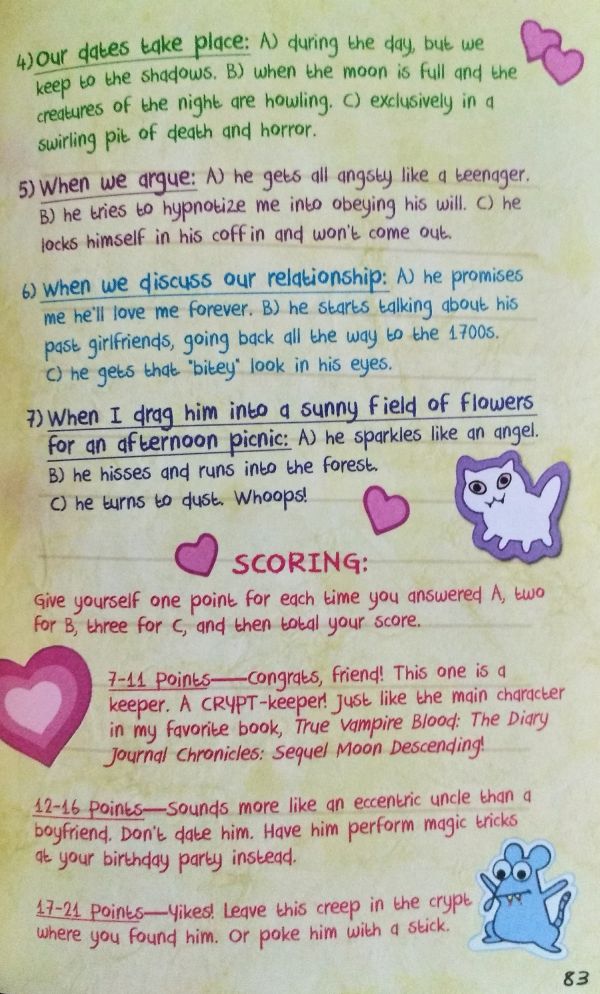 4) Our dates take place: A) during the day, but we
keep to the shadows. B) when the moon is full and the
creatures of the night are howling. C) exclusively in a
swirling pit of death and horror.
5) When we argue: A) he gets all angsty like a teenager.
B) he tries to hypnotize me into obeying his will. C) he
locks himself in his coffin and won't come out.
6) When we discuss our relationship: A) he promises
me he'll love me forever. B) he starts talking about his
past girlfriends, going back all the way to the 1700s.
C) he gets that "bitey" look in his eyes.
7) When I drag him into a sunny field of flowers
for an afternoon picnic: A) he sparkles like an angel.
B) he hisses and runs into the forest.
C) he turns to dust. Whoops!
SCORING:
Give yourself one point for each time you answered A, two
for B, three for C, and then total your score.
7-11 Points—Congrats, friend! This one is a
keeper. A CRYPT-keeper! Just like the main character
in my favorite book, True Vampire Blood: The Diary
Journal Chronicles: Sequel Moon Descending!
12-16 Points—Sounds more like an eccentric uncle than a
boyfriend. Don't date him. Have him perform magic tricks
at your birthday party instead.
17-21 Points—Yikes! Leave this creep in the crypt
where you found him. Or poke him with a stick.
83